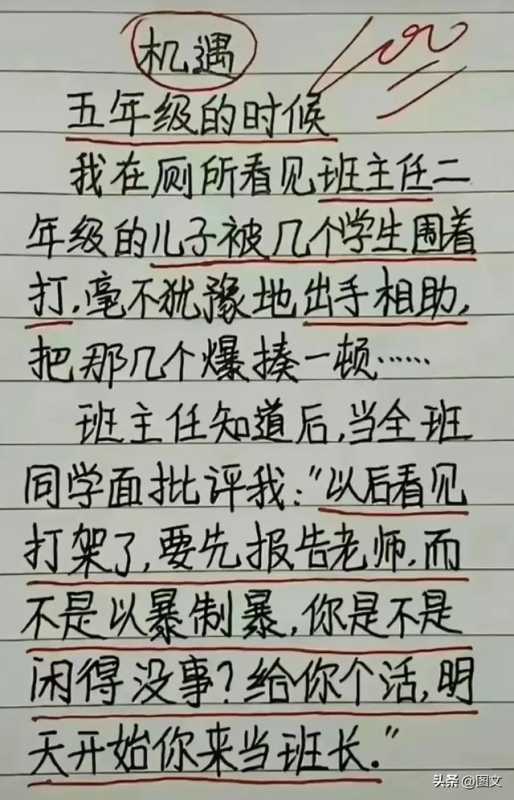 机遇
100
五年级的时候
我在厕所看见班主任二
年级的儿子被几个学生围着
打,毫不犹豫地出手相助,
把那几个爆揍一顿……
班主任知道后,当全班
同学面批评我:“以后看见
打架了,要先报告老师,而
不是以暴制暴,你是不是
闲得没事?给你个活,明
天开始你来当班长.”
头条@图文